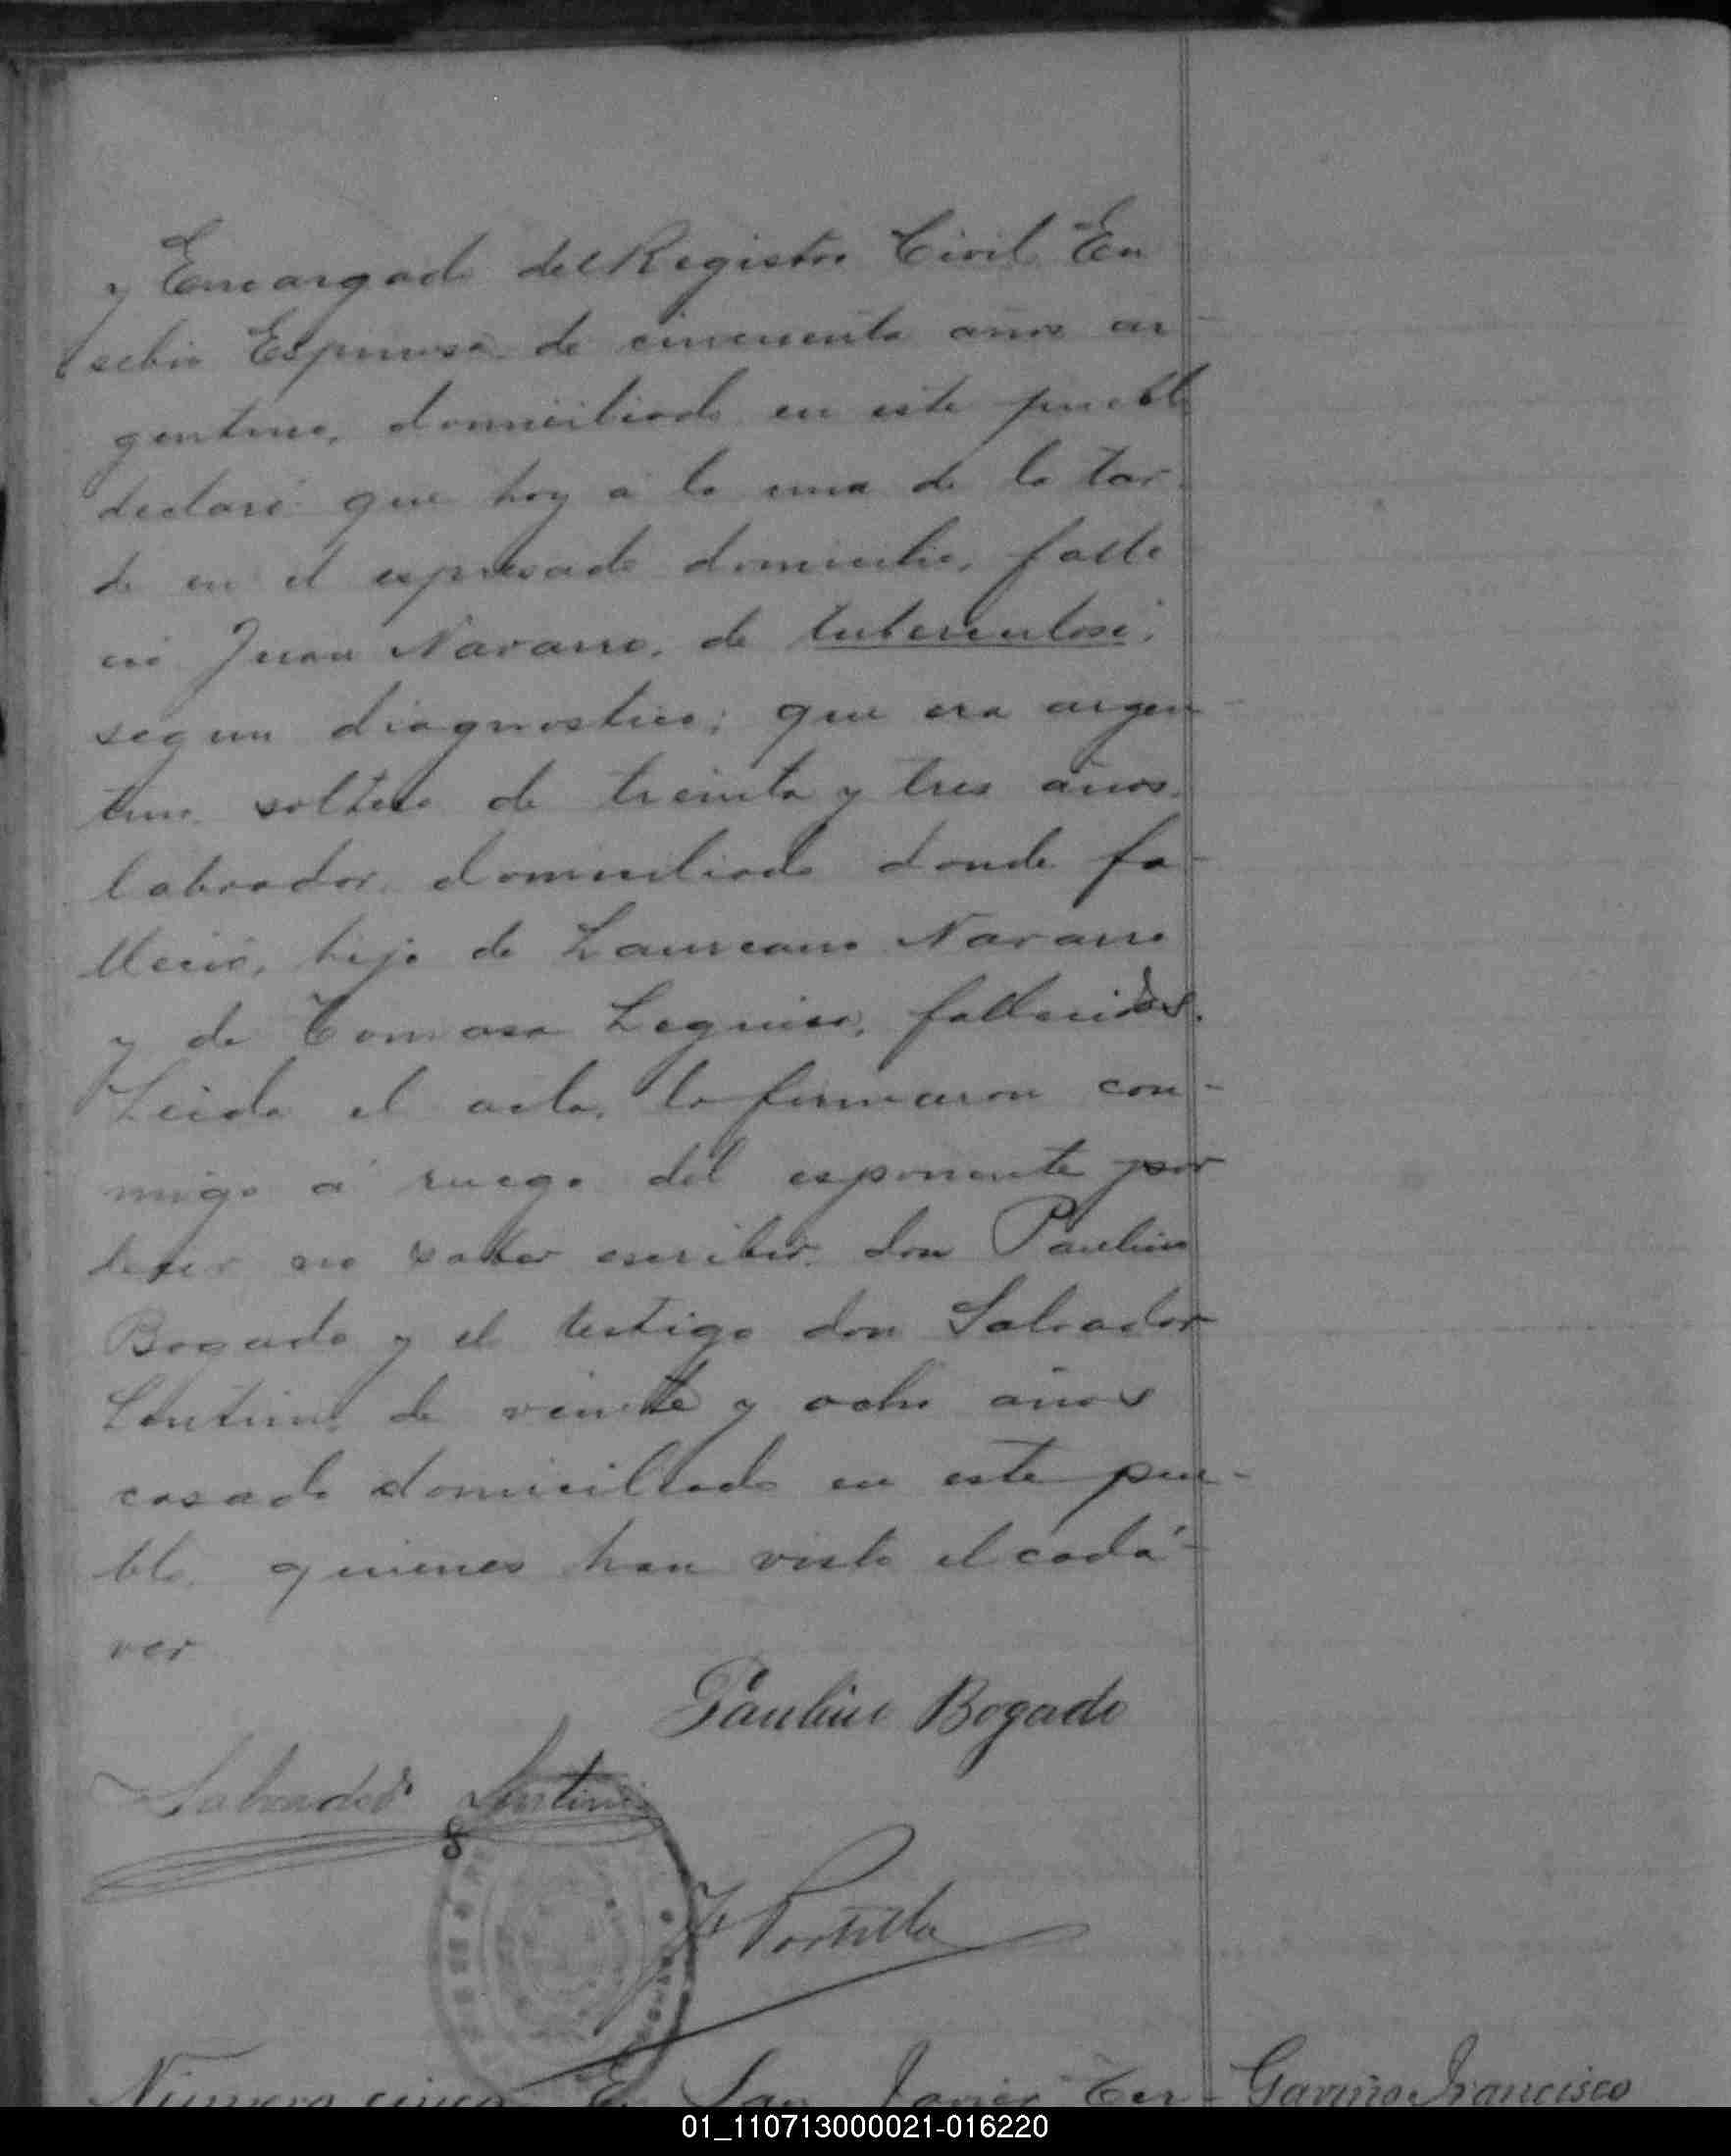 y Encargado del Registro Civil Eu
sebio Espinosa de cincuenta años ar
gentino, domiciliado en este pueblo
declaró que hoy á la una de la tar
de en el espresado domicilio, falle
ció Juan Navarro, de tuberculosi,
segun diagnostico; que era argen
tino soltero de treinta y tres años,
labrador, domiciliado donde fa-
lleció, hijo de Laureano Navarro
y de Tomasa Leguisa, fallecidos.
Leida el acta, la firmaron con-
migo á ruego del esponente por
no saber escribir, don Paulino
Bogado y el testigo don Salvador
de veinte y ocho años
casado domiciliado en este pue-
blo, quienes han visto el cadá-
ver
Paulino Bogado
Salvador
Portilla
Número cinco En San Javier Ter-
Gavino Francisco
01_110713000021-016220